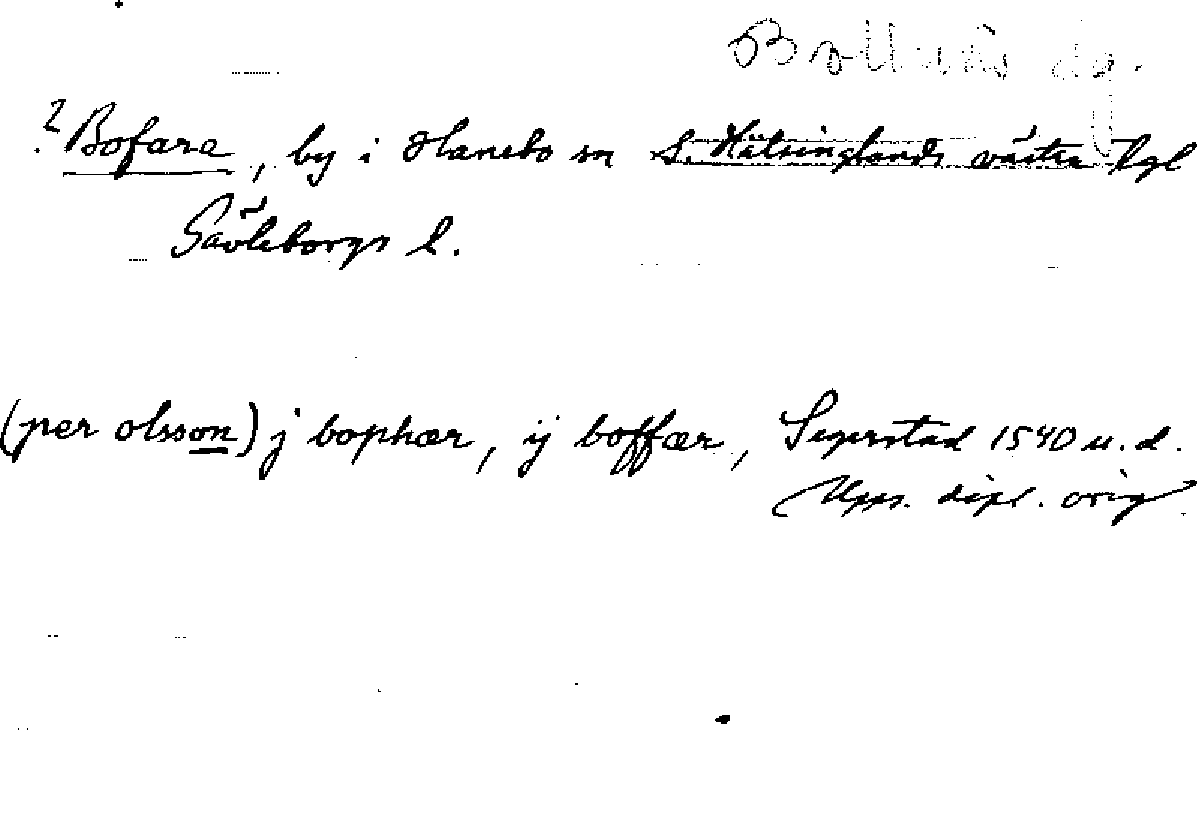 Bollnäs dg.
? Bofara, by i Hanebo sn S. Hälsinglands västra tgl
Gävleborgs l.
(per olsson) j bophær, ij boffær, Segerstad 1540 u. d.
Upps. dipl. orig.